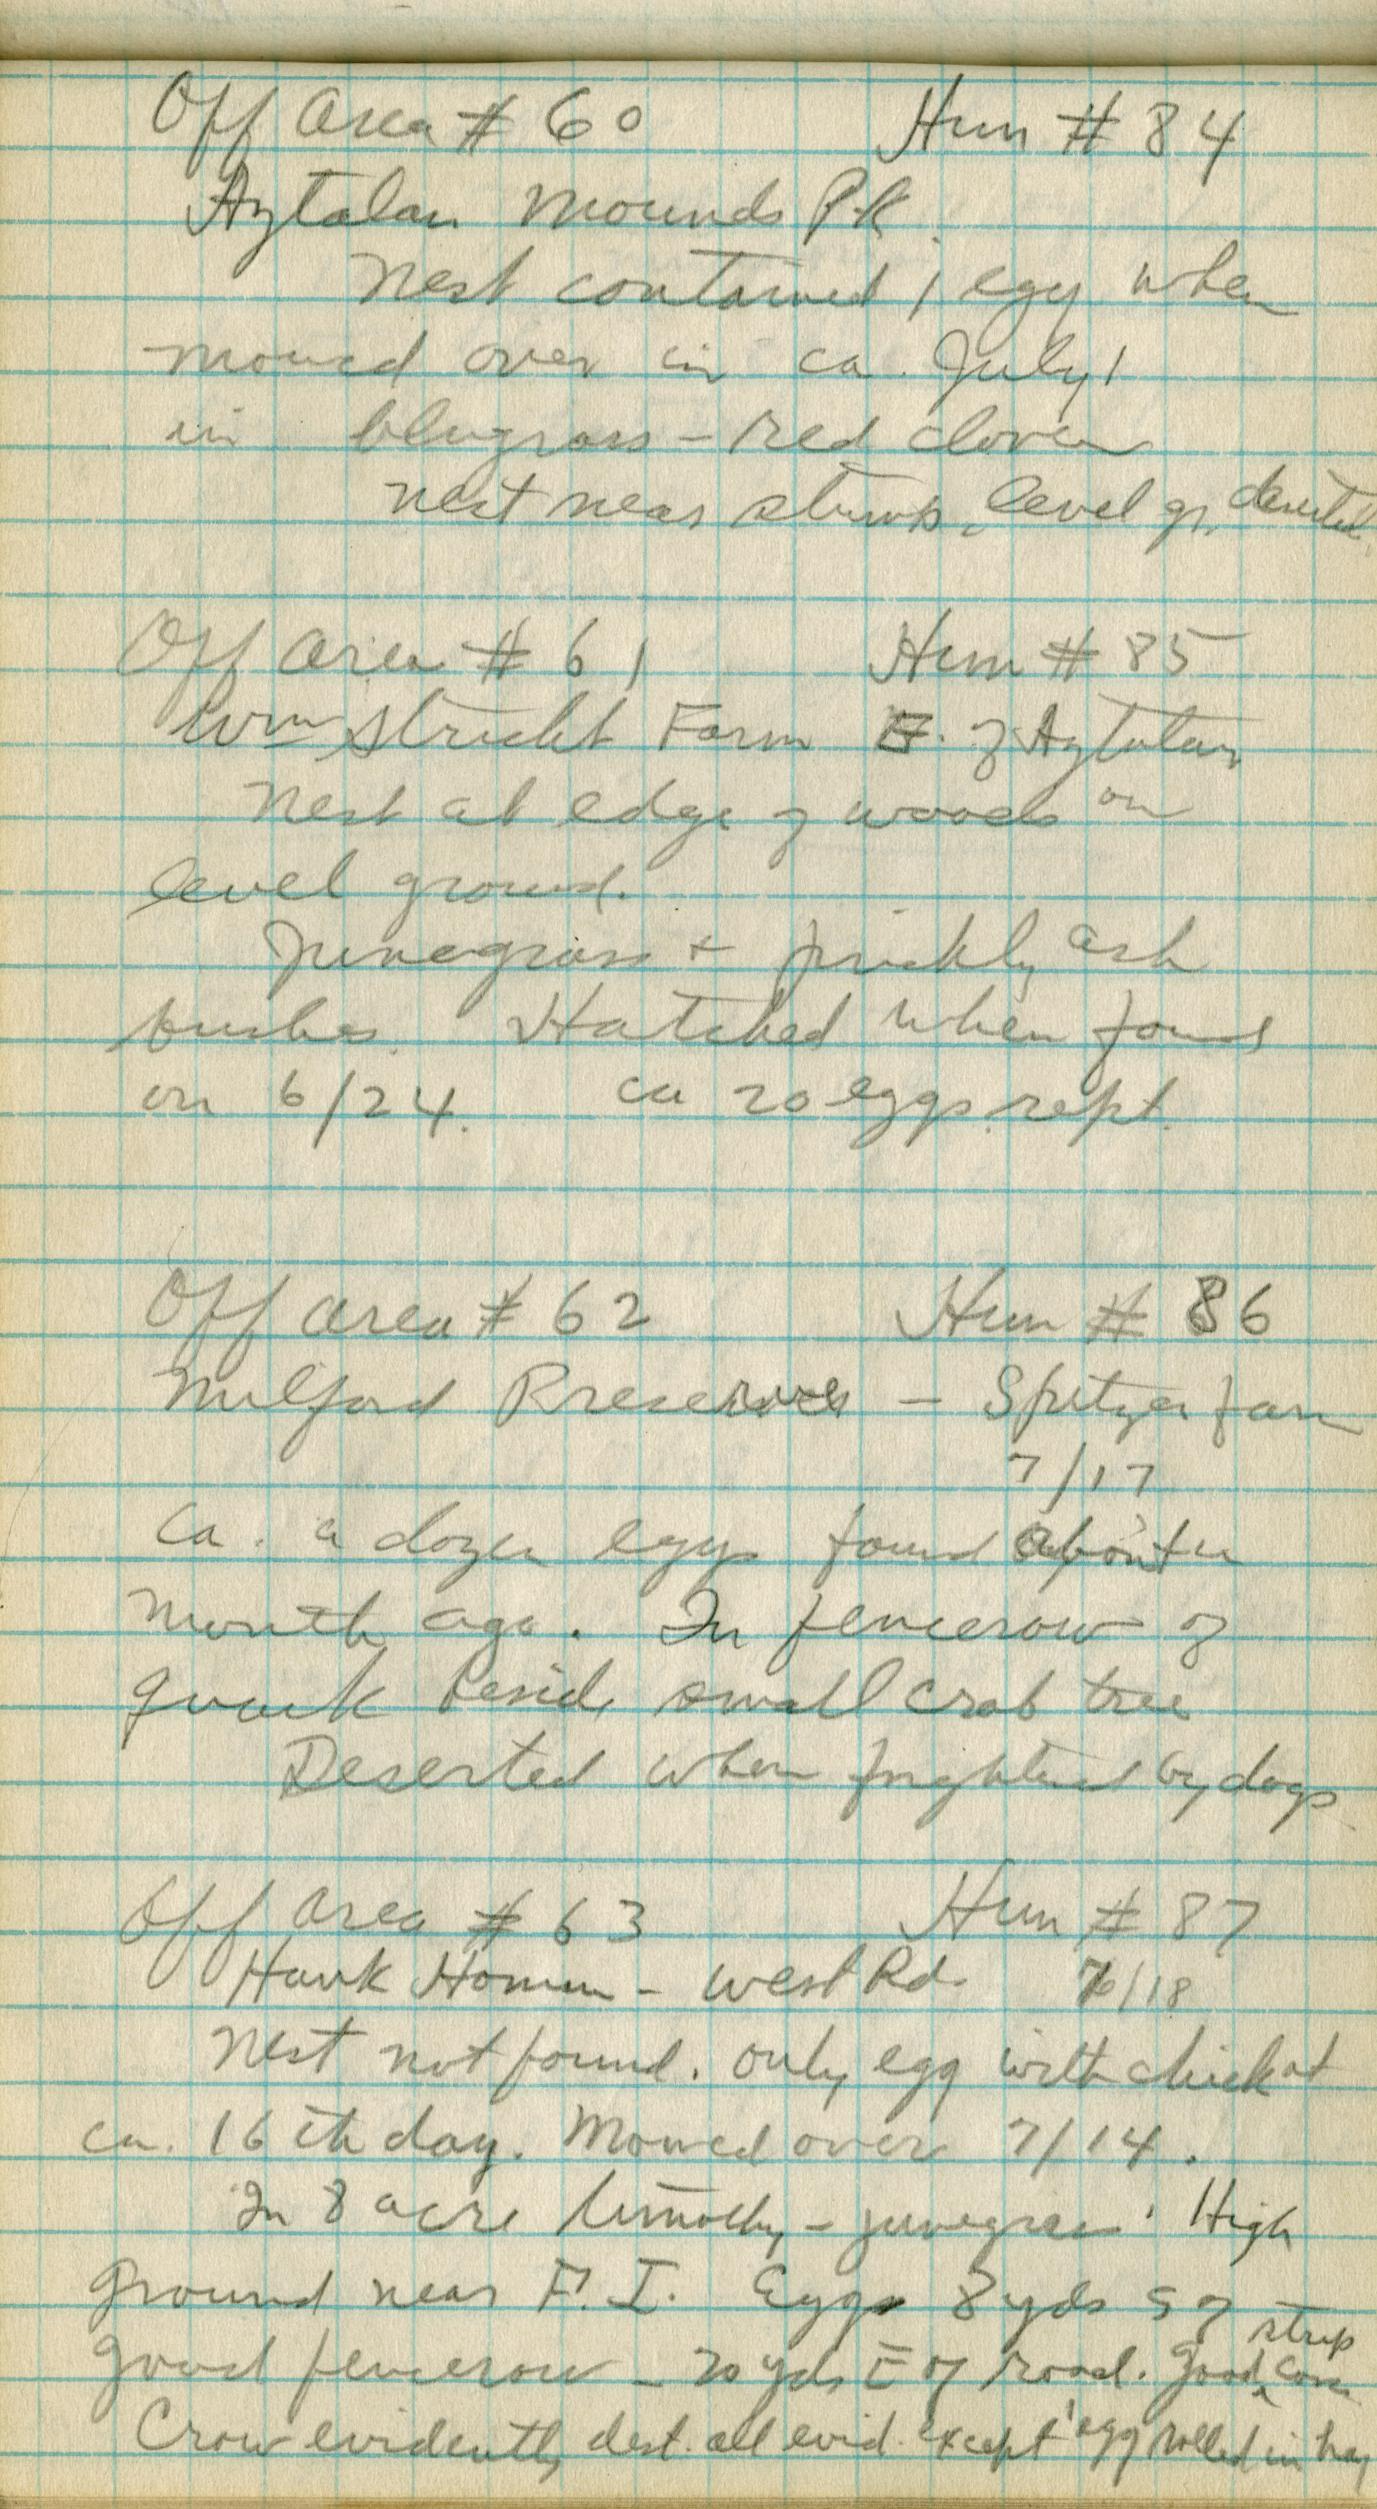 Off area # 60 Hun # 84
Aztalan Mounds Pk.
Nest contained 1 egg when
mowed over in ca. July 1
in blugrass - red clover
nest near stump, level gr. deserted.
Off area # 61 Hun # 85
Wm Strecht Farm E. of Aztalan
Nest at edge of woods on
level ground.
Junegrass + prickly ash
bushes. Hatched when found
on 6/24. ca 20 eggs rept.
Off area # 62 Hun # 86
Milford Preserves - Spitzer farm
7/17
Ca. a dozen eggs found about a
month ago. In fencerow of
quack beside small crab tree
Deserted when frightened by dogs
Off area # 63 Hun # 87
Hawk - West Rd. 7/18
Nest not found. only egg with chick at
ca. 16th day. Mowed over 7/14.
In 8 acre timothy - junegrass. High
ground near F. I. Eggs 8 yds S of
good fencerow - 20 yds E of road. Good strip cover
Crow evidently dest. all evid. except 1 egg rolled in hay